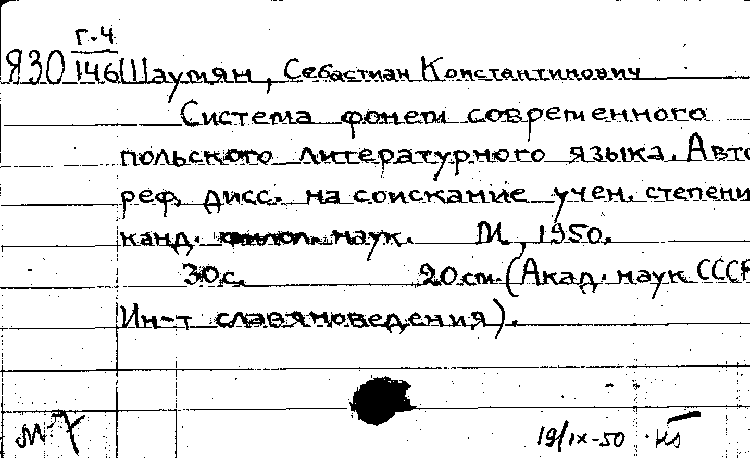 г.4
Я30 146 Шаумян, Себастиан Константинович
Система фонем современного
польского литературного языка. Авто
реф. дисс. на соискание учен. степени
канд. филол. наук. М, 1950.
30 с. 20 см. (Акад. наук СССР
Ин-т славяноведения).
19/IX-50